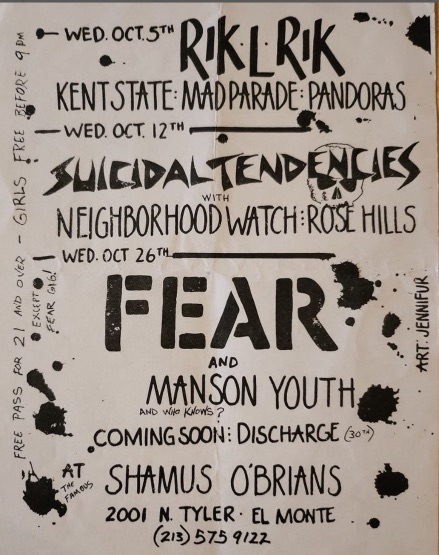 WED. OCT. 5TH RIK·L·RIK
KENT STATE: MAD PARADE: PANDORAS
WED. OCT. 12TH
SUICIDAL TENDENCIES
WITH
NEIGHBORHOOD WATCH: ROSE HILLS
WED. OCT 26TH
FEAR
AND
MANSON YOUTH
AND WHO KNOWS?
COMING SOON: DISCHARGE (30TH)
AT
THE FAMOUS
SHAMUS O'BRIANS
2001 N. TYLER · EL MONTE
(213) 575 9122
FREE PASS FOR 21 AND OVER - GIRLS FREE BEFORE 9 PM
EXCEPT
FEAR GIG!
ART: JENNIFUR